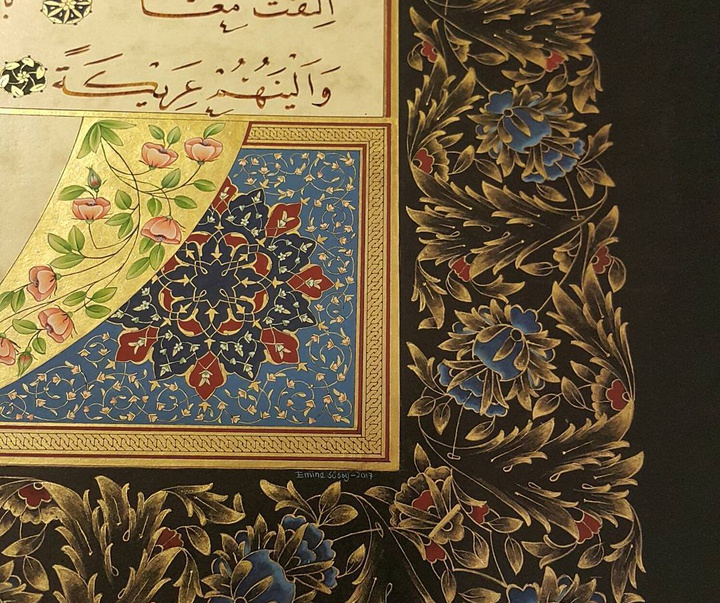 اِلْتَفَتَ مَعًا
وَاَلْيَنُهُمْ عَرِيكَةً
Emine 2017